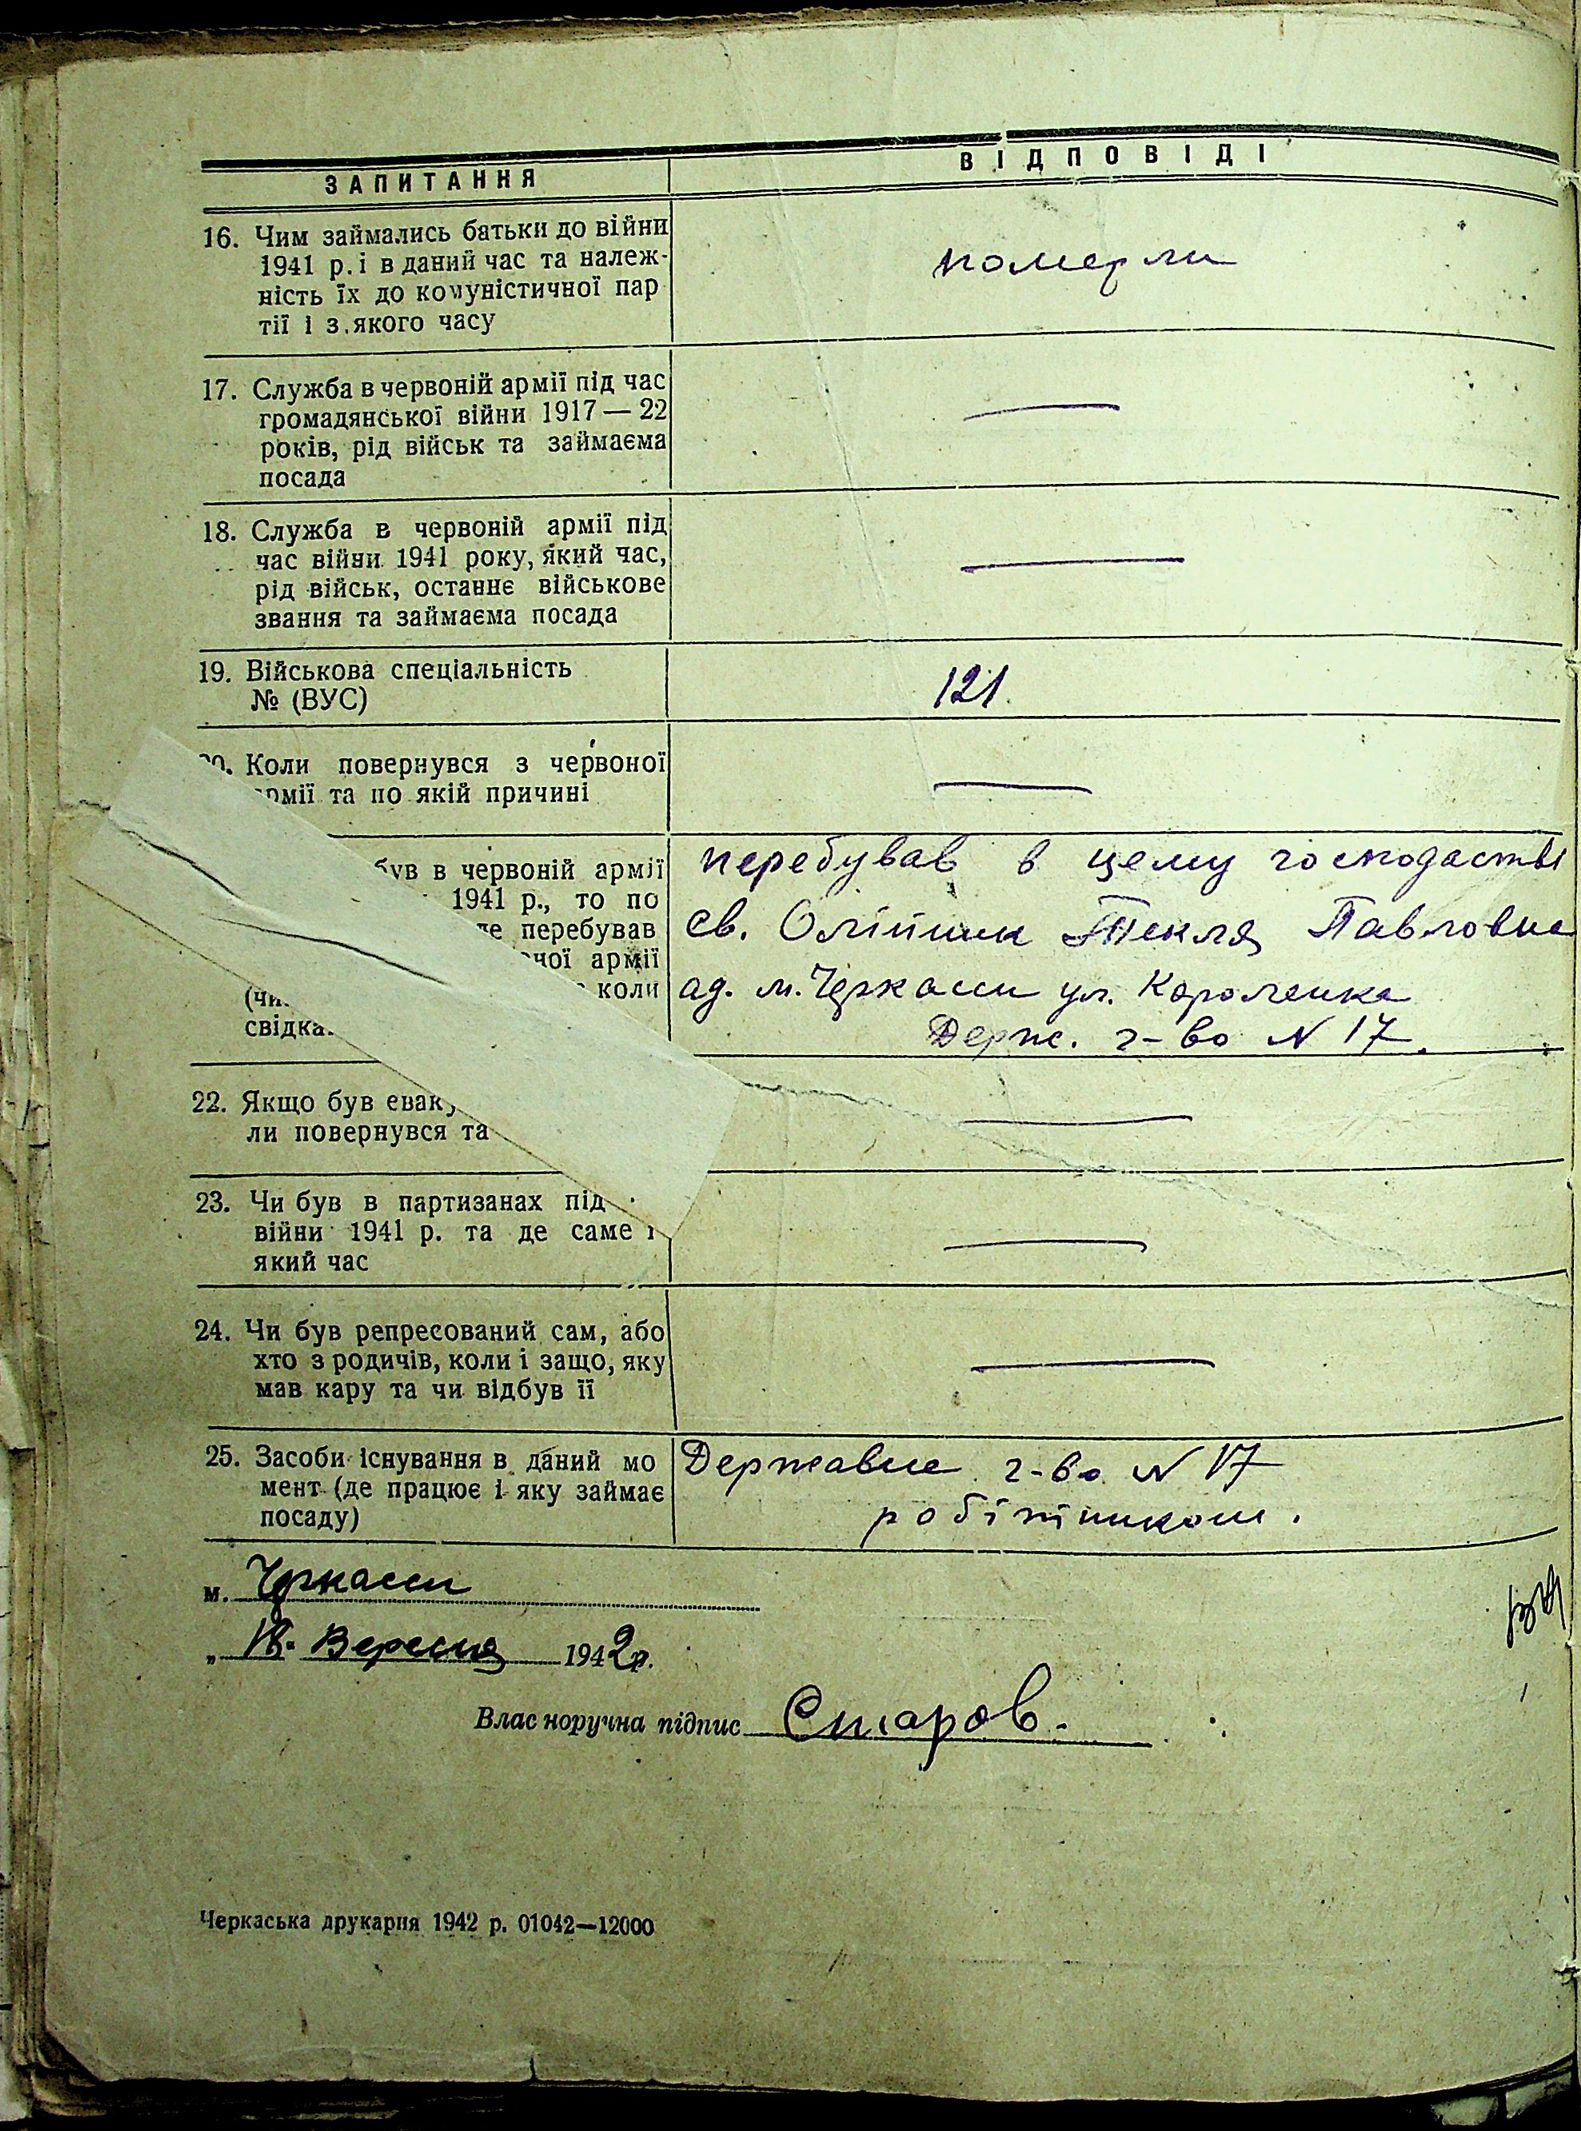 ЗАПИТАННЯ
ВІДПОВІДІ
16. Чим займались батьки до війни
1941 р. і в даний час та належ-
ність їх до комуністичної пар
тії і з якого часу
померли
17. Служба в червоній армії під час
громадянської війни 1917 — 22
років, рід військ та займаєма
посада
18. Служба в червоній армії під
час війни 1941 року, який час,
рід військ, останнє військове
звання та займаєма посада
19. Військова спеціальність
№ (ВУС)
121.
Коли повернувся з червоної
та по якій причині
в червоній армії
1941 р., то по
перебував
армії
коли
перебував в цему господастві
св. Олійник Текля Павловна
ад. м. Черкасси ул. Короленка
Держ. г-во N 17.
22. Якщо був
ли повернувся та
23. Чи був в партизанах під
війни 1941 р. та де саме і
який час
24. Чи був репресований сам, або
хто з родичів, коли і защо, яку
мав кару та чи відбув її
25. Засоби існування в даний мо
мент (де працює і яку займає
посаду)
Державне г-во N 17
робітником.
м. Черкасси
„ 18. Вересня 1942р.
Власноручна підпис Старов.
Черкаська друкарня 1942 р. 01042—12000